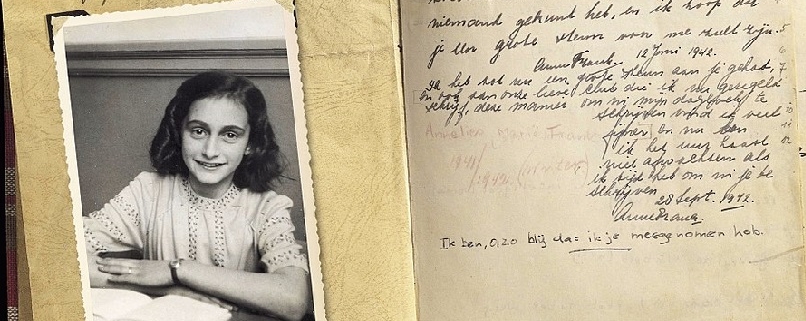 niemand gekund heb, en ik hoop dat
je een grote steun voor me zult zijn.
Anne Frank. 12 Juni 1942.
Ik heb tot nu een grote steun aan je gehad
en ook aan onze lieve club die ik nu geregeld
schrijf, deze manier om in mijn dagboek te
schrijven vind ik veel
fijner en nu kan
ik het uur haast
niet afwachten als
ik tijd heb om in je te
schrijven
28 Sept. 1942.
Anne Frank.
Ik ben, o, zo blij dat ik je meegenomen heb.